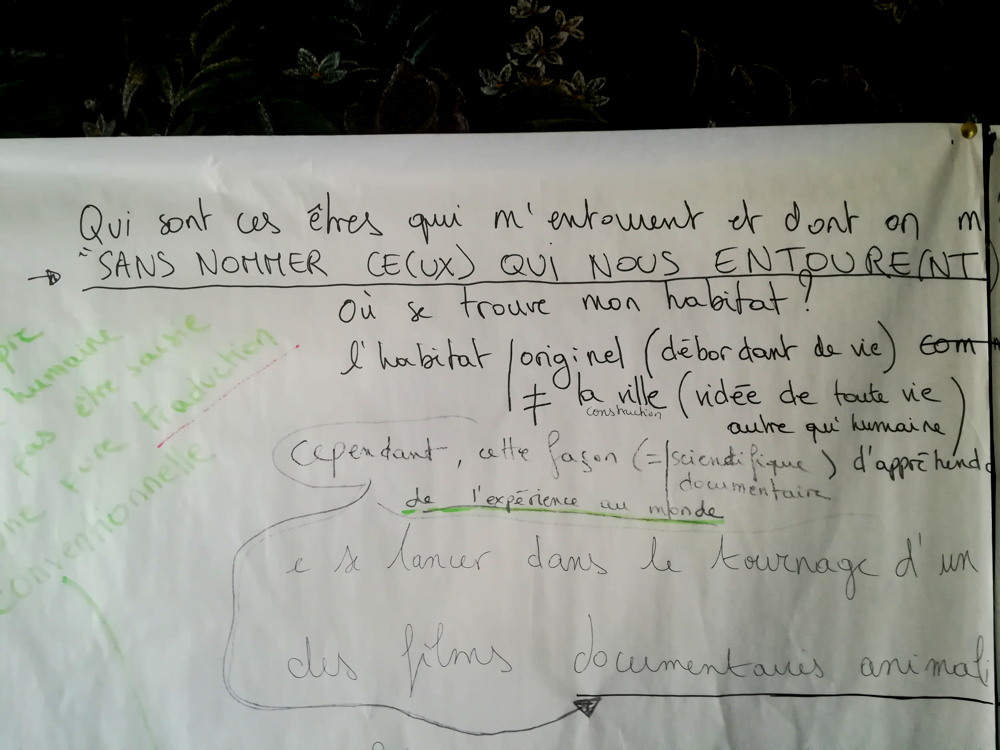 Qui sont ces êtres qui m'entourent et dont on m
→ "SANS NOMMER CE(UX) QUI NOUS ENTOURE(NT)
Où se trouve mon habitat ?
l'habitat originel (débordant de vie) com
≠ la ville (vidée de toute vie
construction
autre qu'humaine)
Cependant, cette façon (= scientifique) d'appréhend
documentaire
de l'expérience au monde
e se lancer dans le tournage d'un
des films documentaires animali
humaine
pas être saisie
pure traduction
conventionnelle